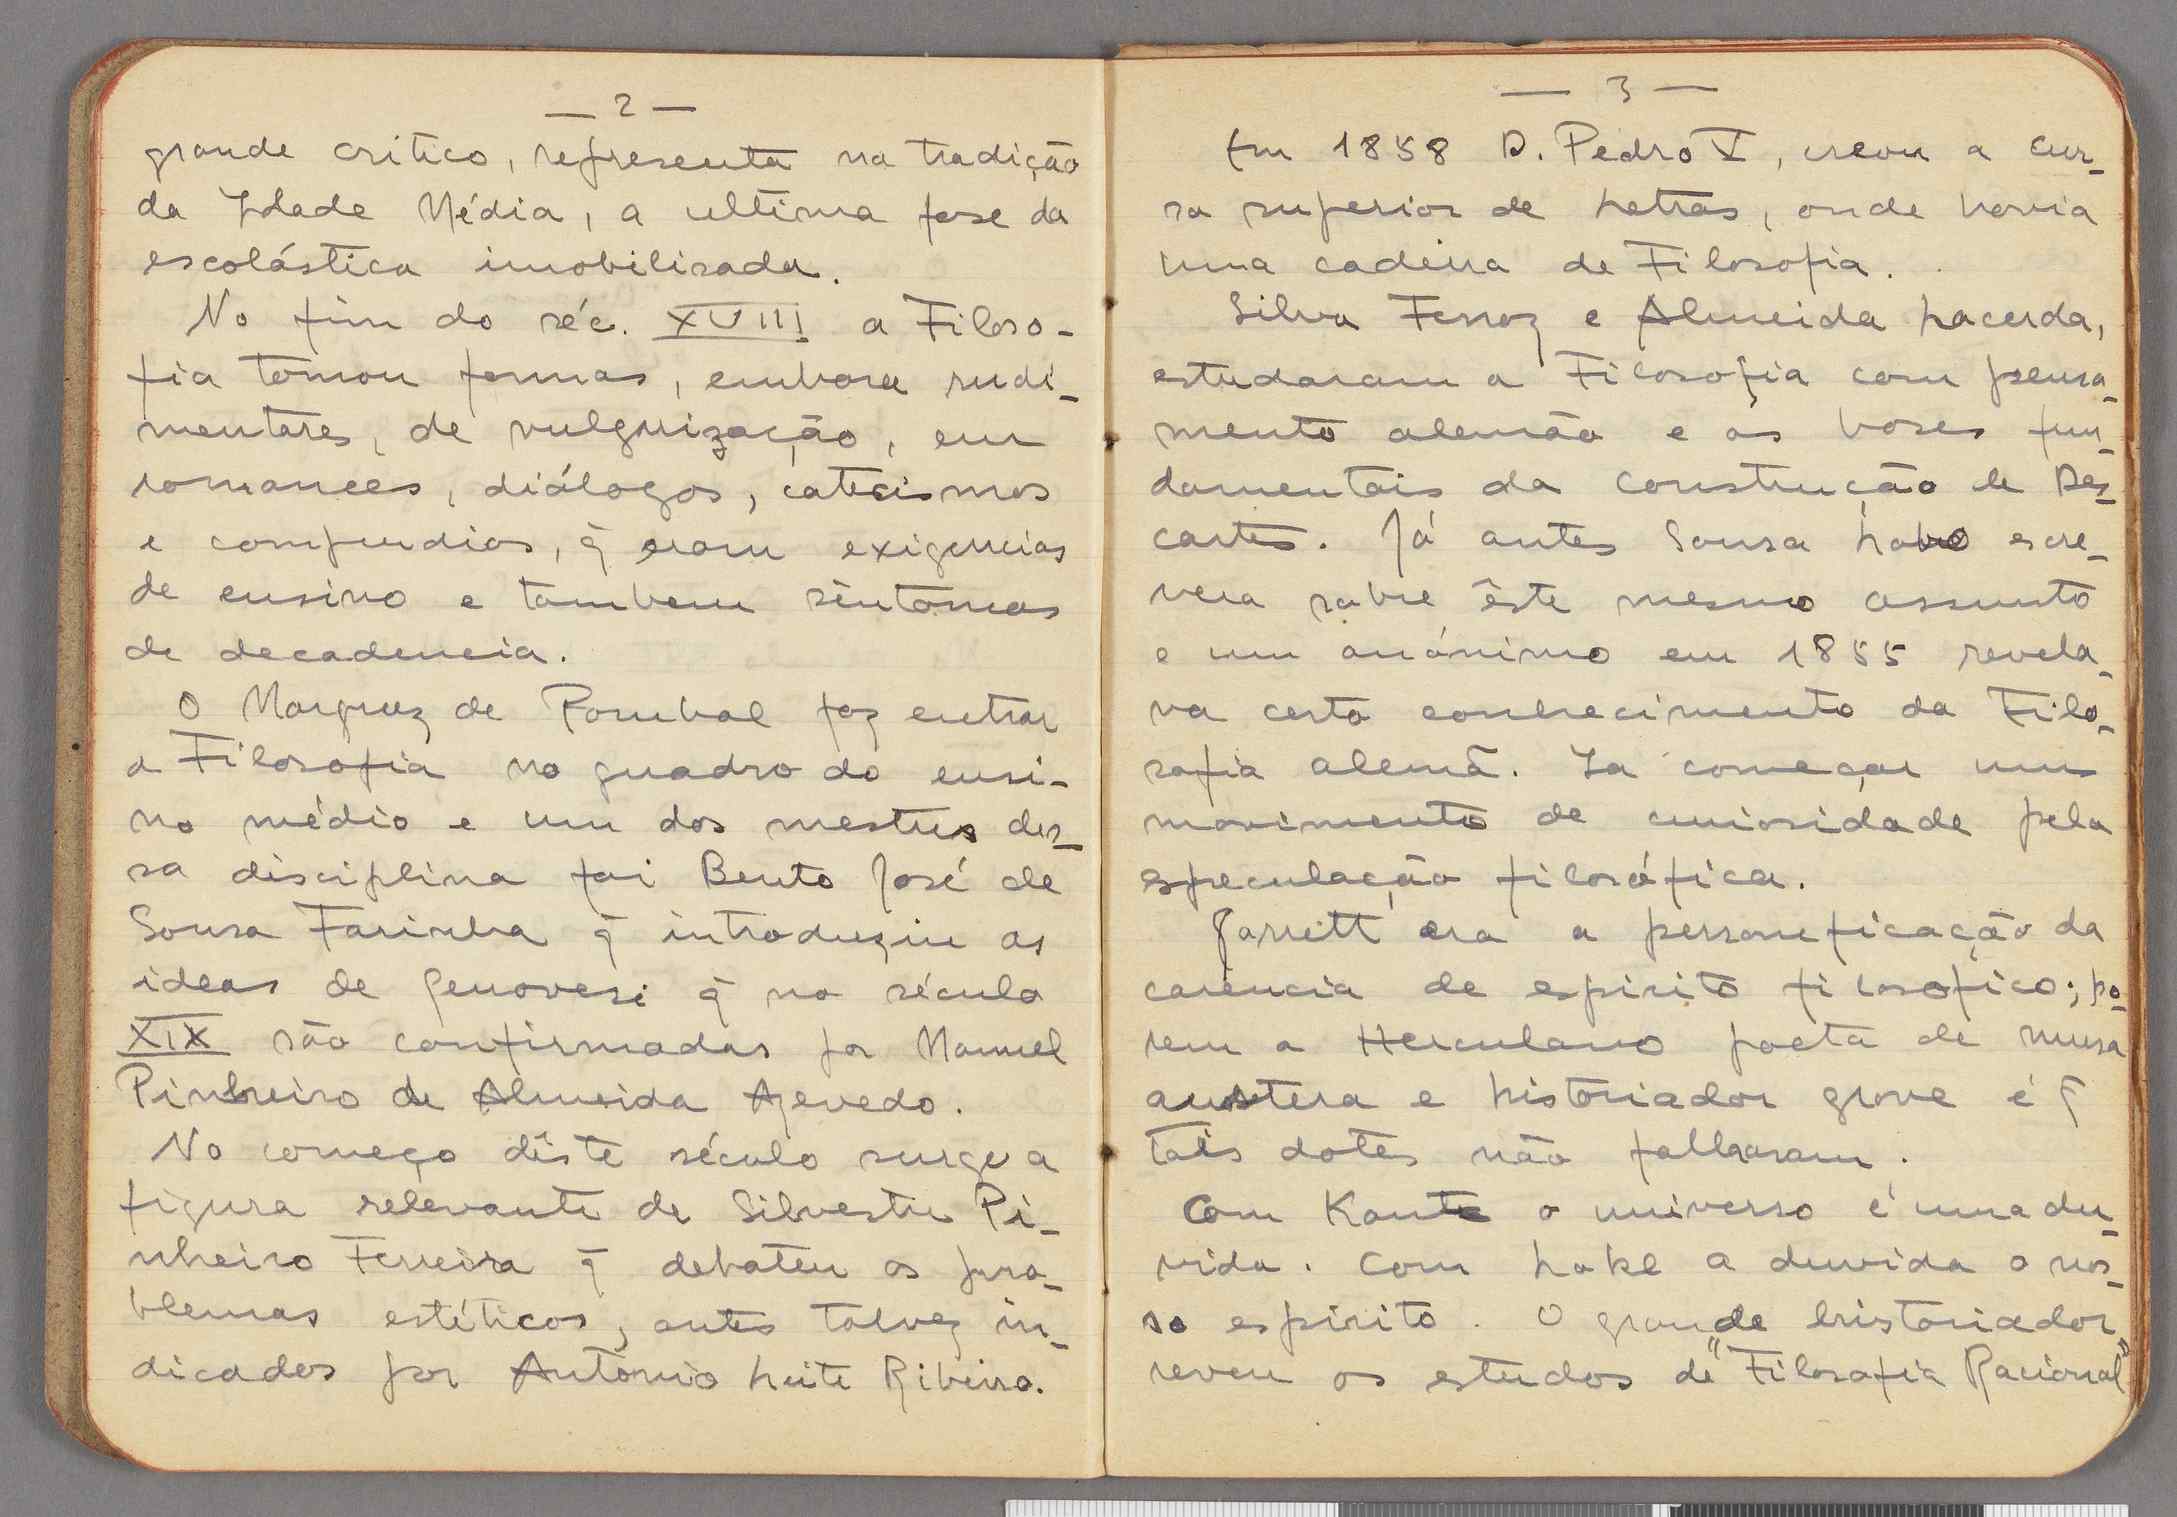 — 2 —
grande critico, representa na tradição
da Idade Média, a ultima fase da
escolástica imobilisada.
No fim do séc. XVIII a Filoso-
fia tomou formas, embora rudi-
mentares, de vulgarização, em
romances, diálogos, catecismos
e compendios, q̃ eram exigencias
de ensino e tambem sintomas
de decadencia.
O Marquez de Pombal faz entrar
a Filosofia no quadro do ensi-
no médio e um dos mestres des-
sa disciplina foi Bento José de
Sousa Farinha q̃ introduziu as
ideas de Genovesi q̃ no século
XIX são confirmadas por Manuel
Pinheiro de Almeida Azevedo.
No começo dêste século surge a
figura relevante de Silvestre Pi-
nheiro Ferreira q̃ debateu os pro-
blemas estéticos, antes talvez in-
dicados por Antonio Leite Ribeiro.
— 3 —
Em 1858 D. Pedro V, creou o cur-
so superior de Letras, onde havia
uma cadeira de Filosofia.
Silva Ferraz e Almeida Lacerda,
estudaram a Filosofia com pensa-
mento alemão e as bases fun-
damentais da construção de Des-
cartes. Já antes Sousa Lobo escre-
vera sobre êste mesmo assunto
e um anónimo em 1855 revela-
va certo conhecimento da Filo-
sofia alemã. Ia começar um
movimento de curiosidade pela
especulação filosófica.
Garrett era a personificação da
carência de espirito filosofico; po-
rem a Herculano poeta de musa
austera e historiador grave é q̃
tais dotes não falharam.
Com Kant o universo é uma du-
vida. Com Loke a duvida o nos-
so espirito. O grande historiador
reveu os estudos de "Filosofia Racional"